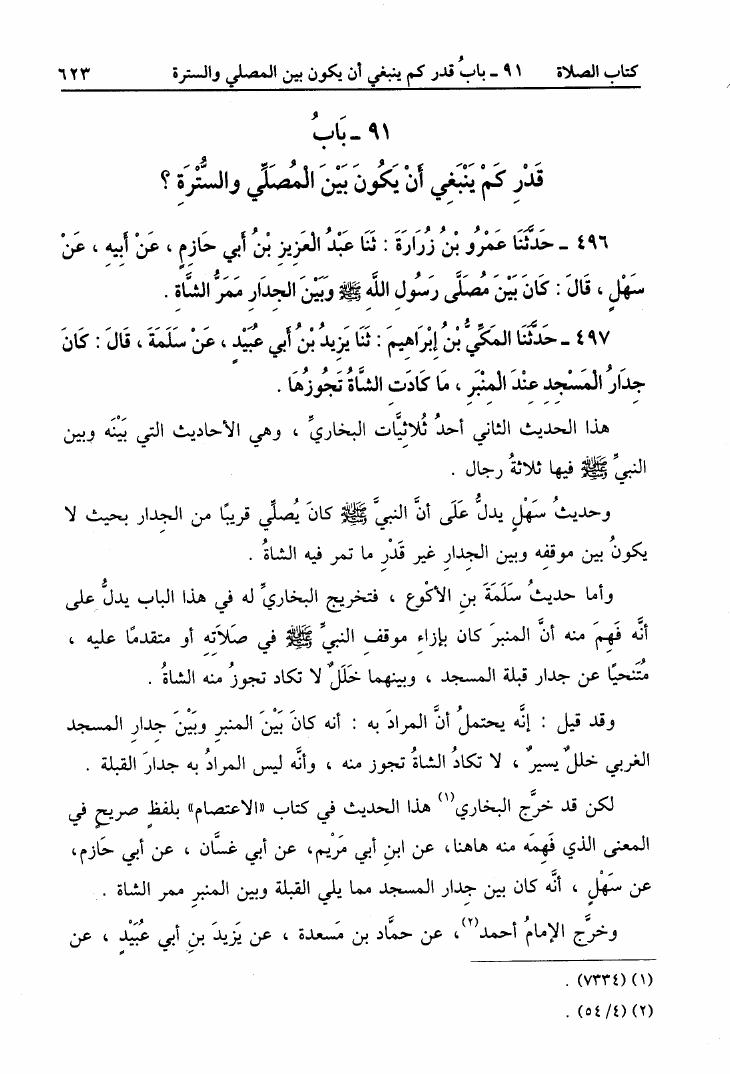 كتاب الصلاة ٩١ - بابُ قدر كم ينبغي أن يكون بين المصلي والسترة ٦٢٣
٩١ - بَابُ
قَدْرِ كَمْ يَنْبَغِي أَنْ يَكُونَ بَيْنَ الْمُصَلِّي والسُّتْرَةِ ؟
٤٩٦ - حَدَّثَنَا عَمْرُو بْنُ زُرَارَةَ : ثَنَا عَبْدُ الْعَزِيزِ بْنُ أَبي حَازِمٍ ، عَنْ أَبِيهِ ، عَنْ
سَهْلٍ ، قَالَ : كَانَ بَيْنَ مُصَلَّى رَسُولِ اللَّهِ ﷺ وَبَيْنَ الجِدَارِ مَمَرُّ الشَّاةِ .
٤٩٧ - حَدَّثَنَا المَكِّيُّ بْنُ إِبْرَاهِيمَ : ثَنَا يَزِيدُ بْنُ أَبي عُبَيْدٍ ، عَنْ سَلَمَةَ ، قَالَ : كَانَ
جِدَارُ الْمَسْجِدِ عِنْدَ الْمِنْبَرِ ، مَا كَادَتِ الشَّاةُ تَجُوزُهَا .
هذا الحديث الثاني أحدُ ثُلاثيَّات البخاريِّ ، وهي الأحاديث التي بَيْنَه وبين
النبيِّ ﷺ فيها ثلاثةُ رجال .
وحديثُ سَهْلٍ يدلُّ عَلَى أنَّ النبيَّ ﷺ كانَ يُصلِّي قريبًا من الجدار بحيث لا
يكونُ بين موقفه وبين الجدارِ غير قَدْرِ ما تمر فيه الشاةُ .
وأما حديثُ سَلَمَةَ بنِ الأكْوعِ ، فتخريج البخاريِّ له في هذا الباب يدلُّ على
أنَّه فَهِمَ منه أنَّ المنبرَ كان بإزاءِ موقف النبيِّ ﷺ في صَلاَتِهِ أو متقدمًا عليه ،
مُتَنحيًا عن جدار قبلة المسجد ، وبينهما خَلَلٌ لا تكاد تجوزُ منه الشاةُ .
وقد قيل : إنَّه يحتملُ أنَّ المرادَ به : أنه كانَ بَيْنَ المنبر وبَيْنَ جدارِ المسجد
الغربي خللٌ يسيرٌ ، لا تكادُ الشاةُ تجوز منه ، وأنَّه ليس المرادُ به جدارَ القبلة .
لكن قد خرَّج البخاري(١) هذا الحديث في كتاب «الاعتصام» بلفظٍ صريحٍ في
المعنى الذي فَهِمَه منه هاهنا، عن ابنِ أبي مَرْيم، عن أبي غسَّان ، عن أبي حَازم،
عن سَهْلٍ ، أنَّه كان بين جدار المسجد مما يلي القبلة وبين المنبرِ ممر الشاة .
وخرَّج الإمامُ أحمد(٢)، عن حمَّاد بن مَسعدة ، عن يَزيدَ بنِ أبي عُبَيْدٍ ، عن
(١) (٧٣٣٤) .
(٢) (٥٤/٤) .